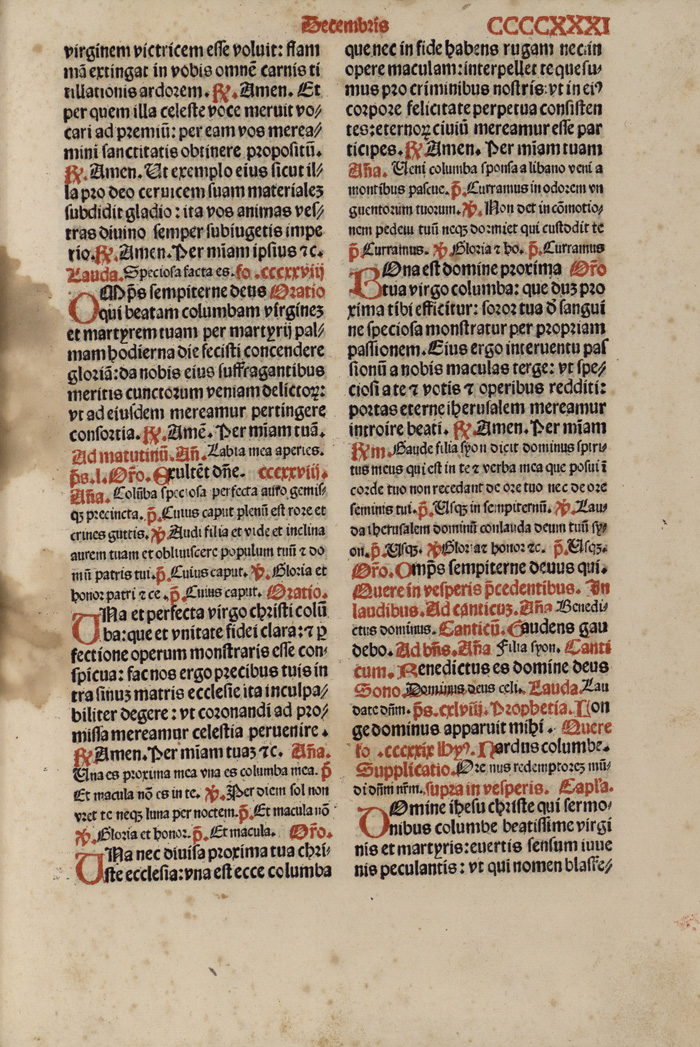 Decembris
CCCCXXXI
virginem victricem esse voluit: flam
mā extingat in vobis omnē carnis ti
tillationis ardorem. ℟. Amen. Et
per quem illa celeste voce meruit vo/
cari ad premiū: per eam vos merea/
mini sanctitatis obtinere propositū.
℟. Amen. Ut exemplo eius sicut il/
la pro deo ceruicem suam materialeꝫ
subdidit gladio: ita vos animas ves/
tras diuino semper subiugetis impe
rio. ℟. Amen. Per mīam ipsius ⁊c.
Lauda. Speciosa facta es. fo. ccccxxviij
OMp̄s sempiterne deus Oratio
qui beatam columbam virgineꝫ
et martyrem tuam per martyrij pal/
mam hodierna die fecisti concendere
gloriā: da nobis eius suffragantibus
meritis cunctorum veniam delictoꝝ:
vt ad eiusdem mereamur pertingere
consortia. ℟. Amē. Per mīam tuā.
Ad matutinū. Añ. Labia mea aperies.
ps. l. Oro. Exultēt dñe. cccxxviij.
Aña. Colūba speciosa perfecta auro gemis/
qꝫ precincta. p̄. Cuius caput plenū est rore et
crines guttis. ℣. Audi filia et vide et inclina
aurem tuam et obliuiscere populum tuū ⁊ do
mū patris tui. p̄. Cuius caput. ℣. Gloria et
honor patri ⁊ ce. p̄. Cuius caput. Oratio.
UNa et perfecta virgo christi colū
ba: que et vnitate fidei clara: ⁊ ꝑ
fectione operum monstraris esse con/
spicua: fac nos ergo precibus tuis in
tra sinuꝫ matris ecclesie ita inculpa/
biliter degere: vt coronandi ad pro/
missa mereamur celestia peruenire.
℟. Amen. Per mīam tuaꝫ ⁊c. Aña.
Una es proxima mea vna es columba mea. p̄
Et macula nō es in te. ℣. Per diem sol non
vret te neqꝫ luna per noctem. p̄. Et macula nō
℣. Gloria et honor. p̄. Et macula. Oro.
UNa nec diuisa proxima tua chri/
ste ecclesia: vna est ecce columba
que nec in fide habens rugam nec in
opere maculam: interpellet te quesu/
mus pro criminibus nostris: vt in eiꝰ
corpore felicitate perpetua consisten
tes: eternoꝝ ciuiū mereamur esse par
ticipes. ℟. Amen. Per mīam tuam
Aña. Ueni columba sponsa a libano veni a
montibus pascue. p̄. Curramus in odorem vn
guentorum tuorum. ℣. Non det in cōmotio/
nem pedem tuū neqꝫ dormiet qui custodit te
p̄ Curramus. ℣. Gloria ⁊ ho. p̄. Curramus
BOna est domine proxima Oro
tua virgo columba: que duꝫ pro
xima tibi efficitur: soror tua d̄ sangui
ne speciosa monstratur per propriam
passionem. Eius ergo interuentu pas
sionū a nobis maculas terge: vt spe/
ciosi a te ⁊ votis ⁊ operibus redditi:
portas eterne iherusalem mereamur
introire beati. ℟. Amen. Per mīam
℟m. Gaude filia syon dicit dominus spiri/
tus meus qui est in te ⁊ verba mea que posui ī
corde tuo non recedant de ore tuo nec de ore
seminis tui. p̄. Usqꝫ in sempiternū. ℣. Lau/
da iherusalem dominū conlauda deum tuū sy/
on. p̄. Usqꝫ. ℣. Gloria ⁊ honor ⁊c. p̄. Usqꝫ.
Oro. Omp̄s sempiterne deuus qui.
Quere in vesperis p̄cedentibus. In
laudibus. Ad canticuꝫ. Aña Benedi/
ctus dominus. Canticū. Gaudens gau
debo. Ad bñs. Aña Filia syon. Canti
cum. Benedictus es domine deus
Sono. Dominus deus celi. Lauda. Lau
date dñm. ps. cxlviij. Prophetia. Lon
ge dominus apparuit mihi. Quere
fo. ccccxxix Ihyꝰ. Nardus columbe.
Supplicatio. Oremus redemptoreꝫ mū/
di dñm nr̄m. supra in vesperis. Capl'a.
DOmine ihesu christe qui sermo/
nibus columbe beatissime virgi
nis et martyris: euertis sensum iuue
nis peculantis: vt qui nomen blasfe/